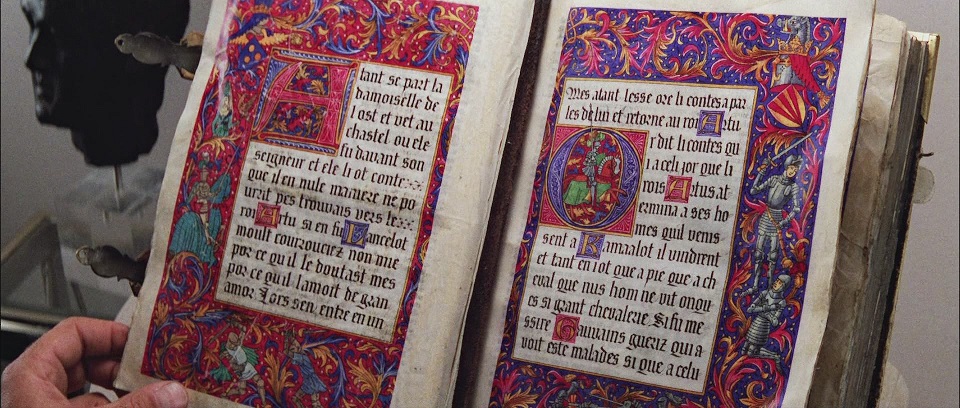 Atant se part la
damoiselle de
lost et vet au
chastel ou ele
fu davant son
seigneur et ele li ot conte
que il en nule maniere ne po
urrit pes trouvair vers le
roi Artu si en fu Lancelot
moult courrouciez non mie
por ce quil le doutast mes
por ce quil lamoit de gran
amor Lors sen entre en un
Mes atant lesse ore li contes a par
ler de lui et retorne au roi Artu
Or dit li contes qu
i a cel jor que li
rois Artus at
ermina a ses ho
mes quil venis
sent a Kamaalot il vindrent
et tant en i ot que a pie que a ch
eval que nus hom ne vit onqu
es si grant chevalerie. Si fu me
ssire Gauvains gueriz qui a
voit este malades si que a celu